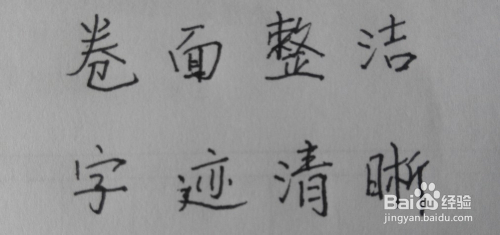 卷面整洁
字迹清晰
Baidu经验
jingyan.baidu.com